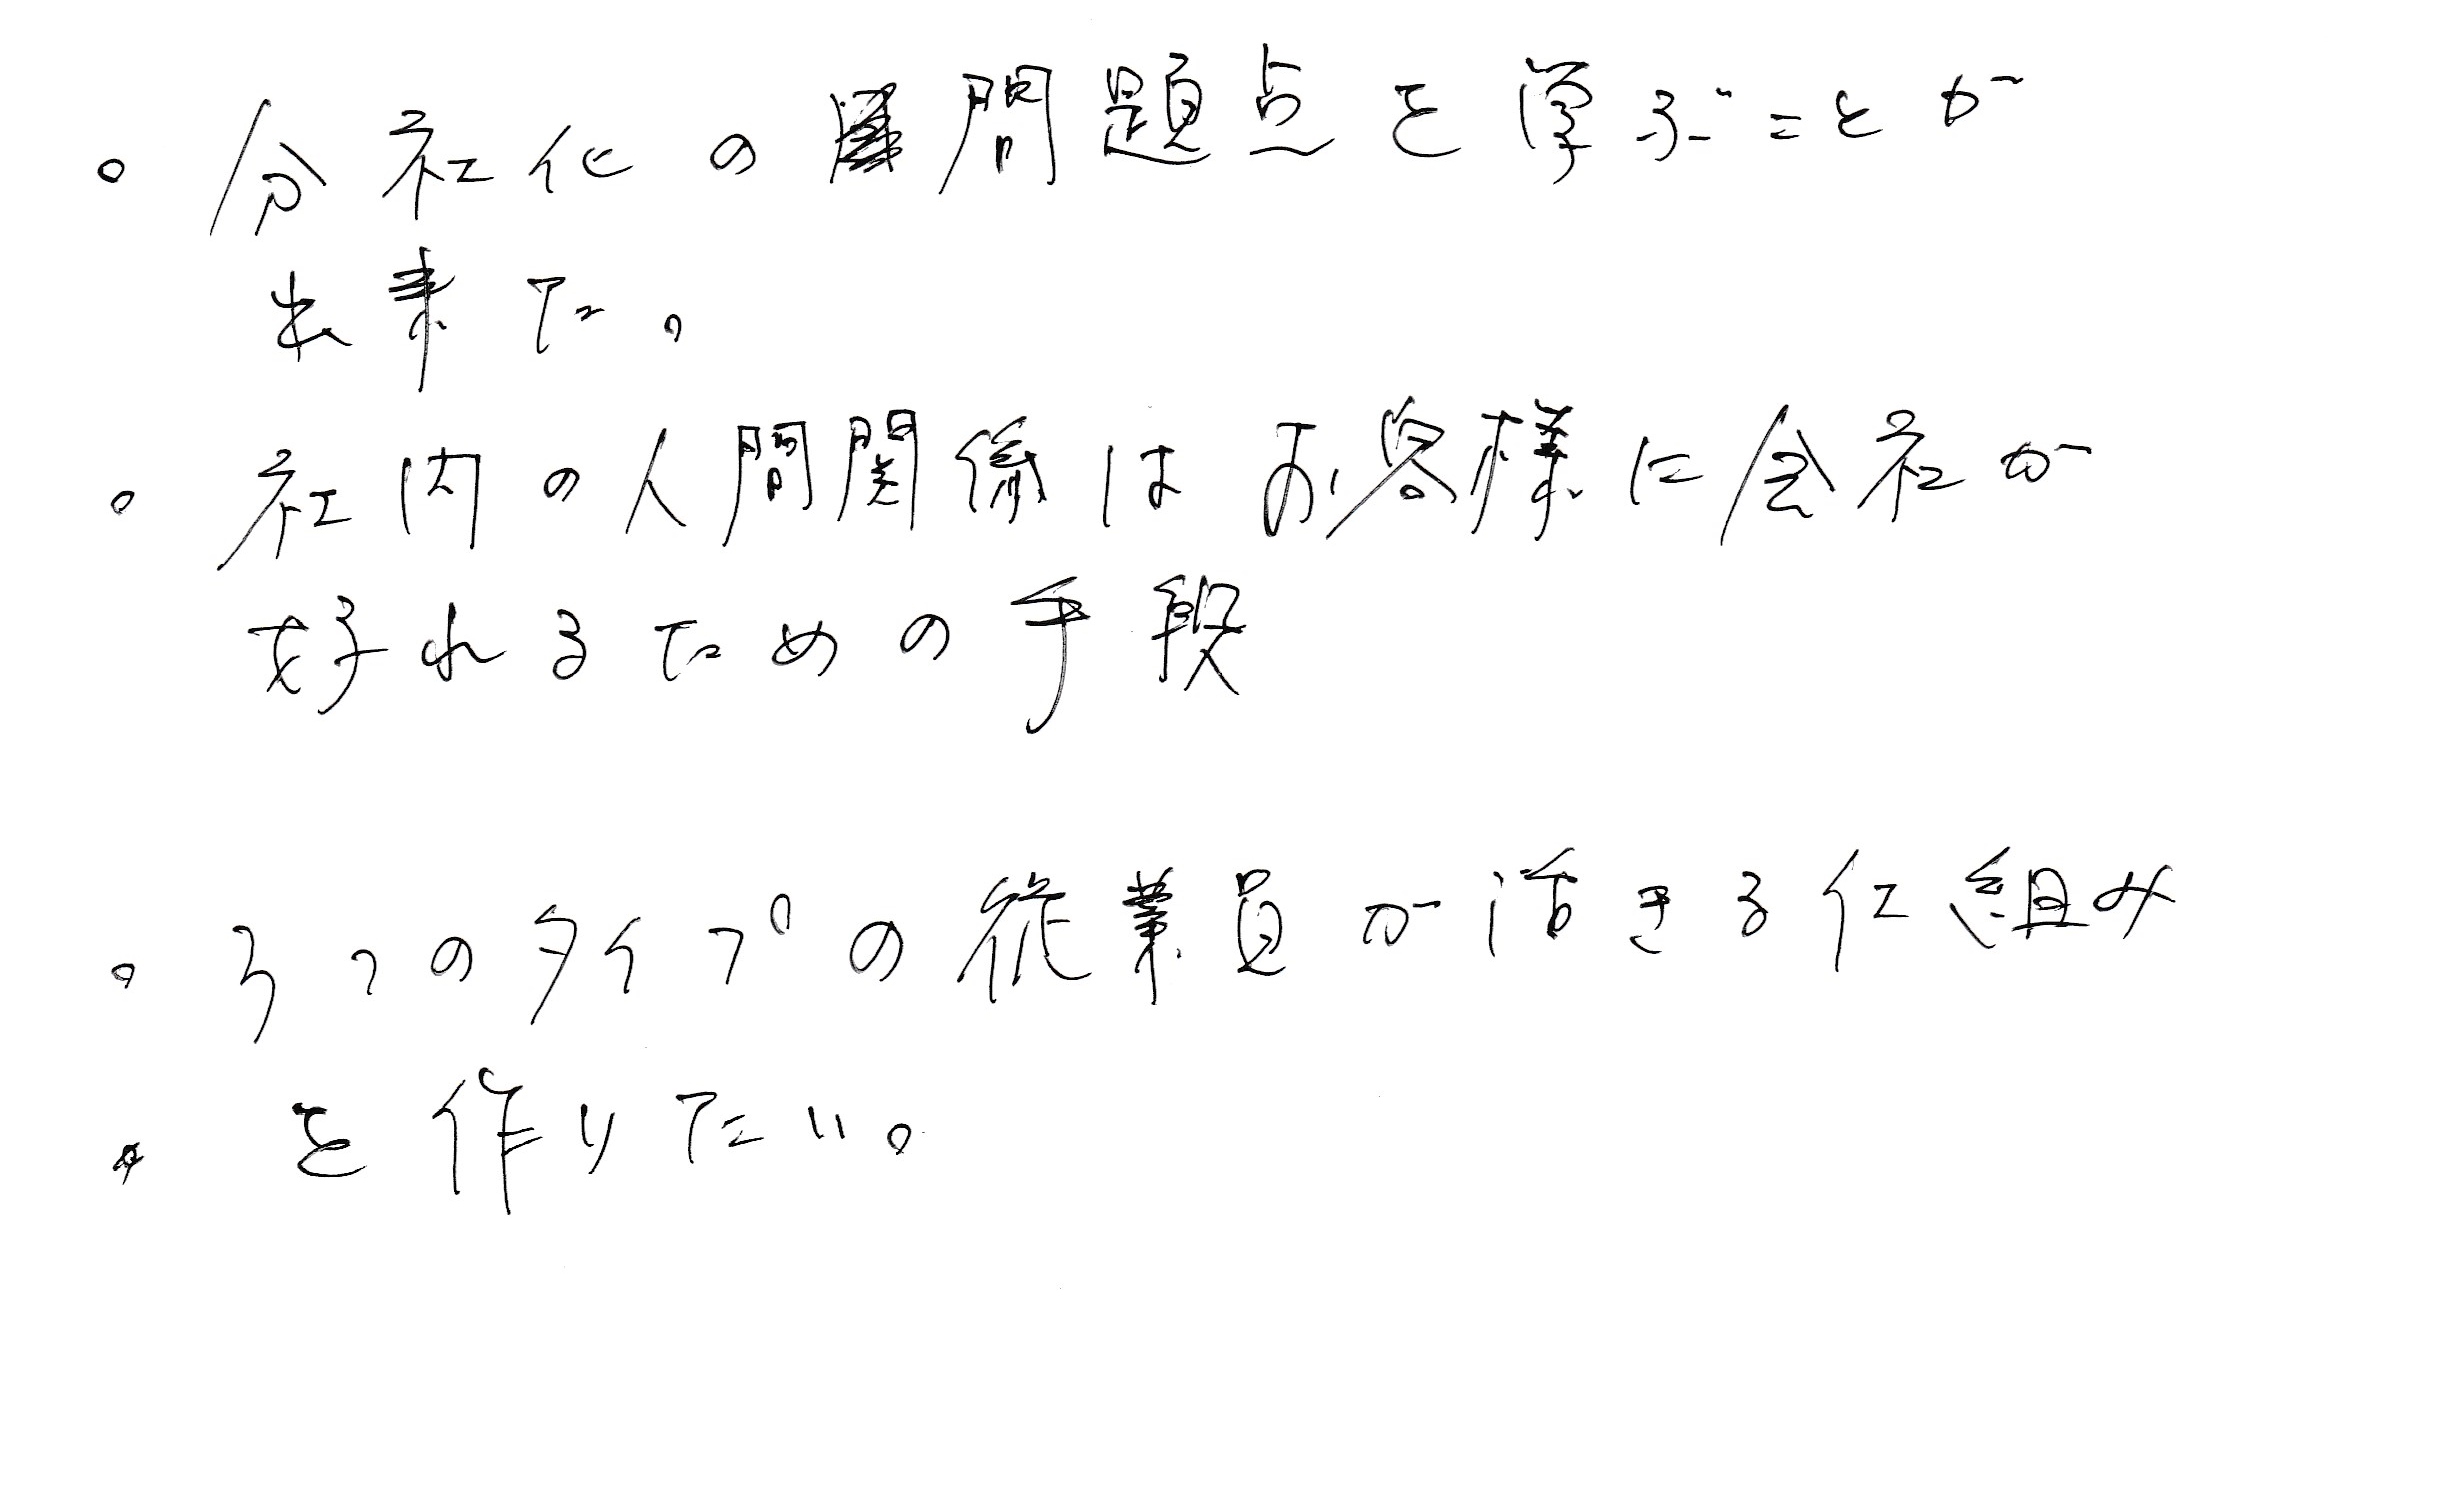 。分社化の問題点を学ぶことが
出来た。
。社内の人間関係はお客様に会社が
好れるための手段
。3つのタイプの従業員が活きる仕組み
を作りたい。